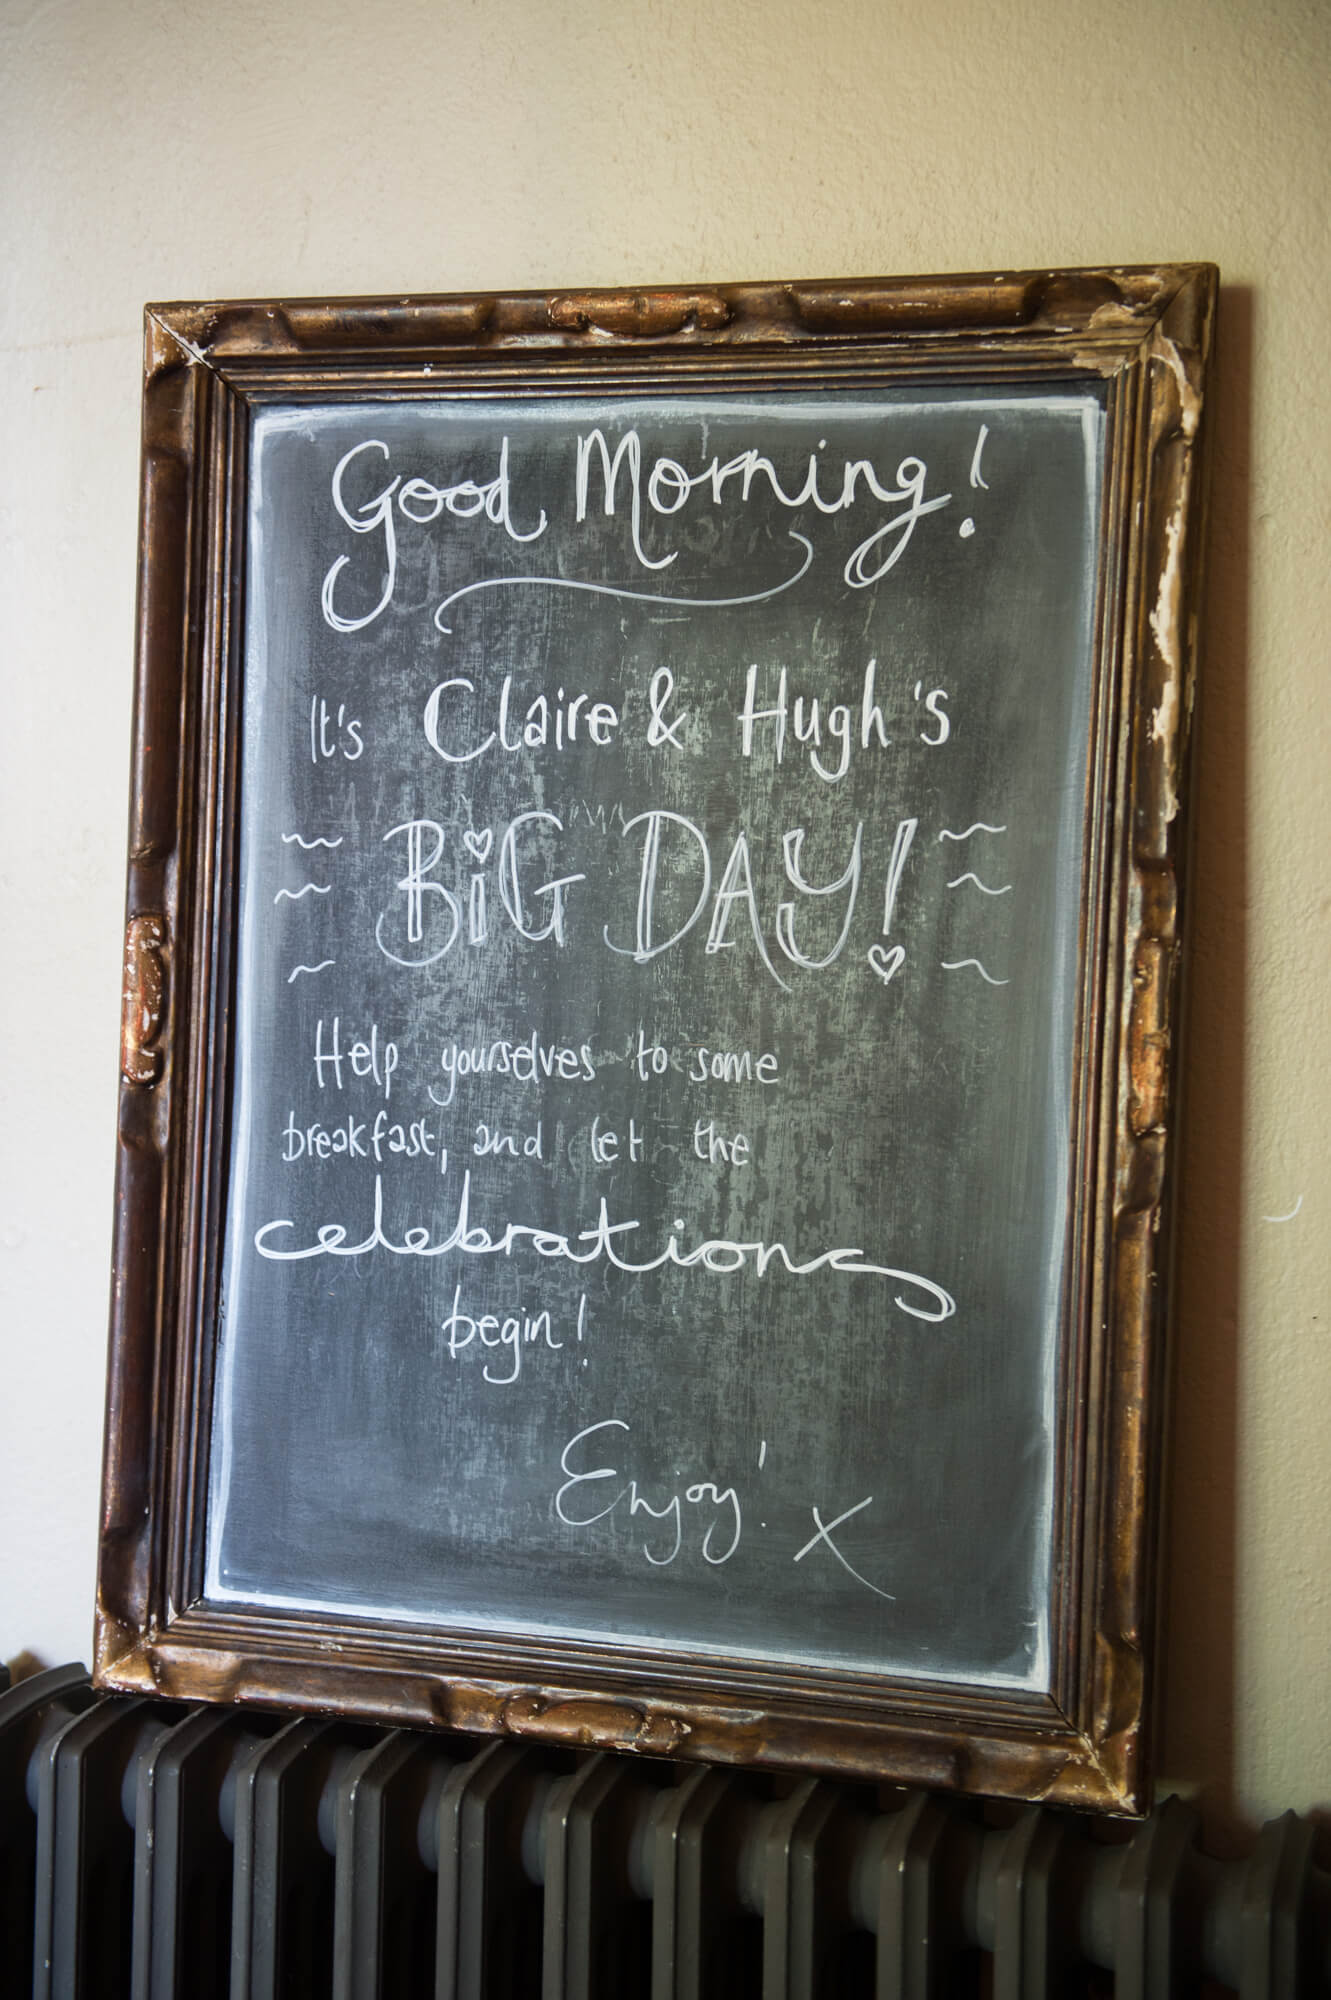 Good Morning!
It's Claire & Hugh's
BiG DAY!
Help yourselves to some
breakfast, and let the
celebrations
begin!
Enjoy! X